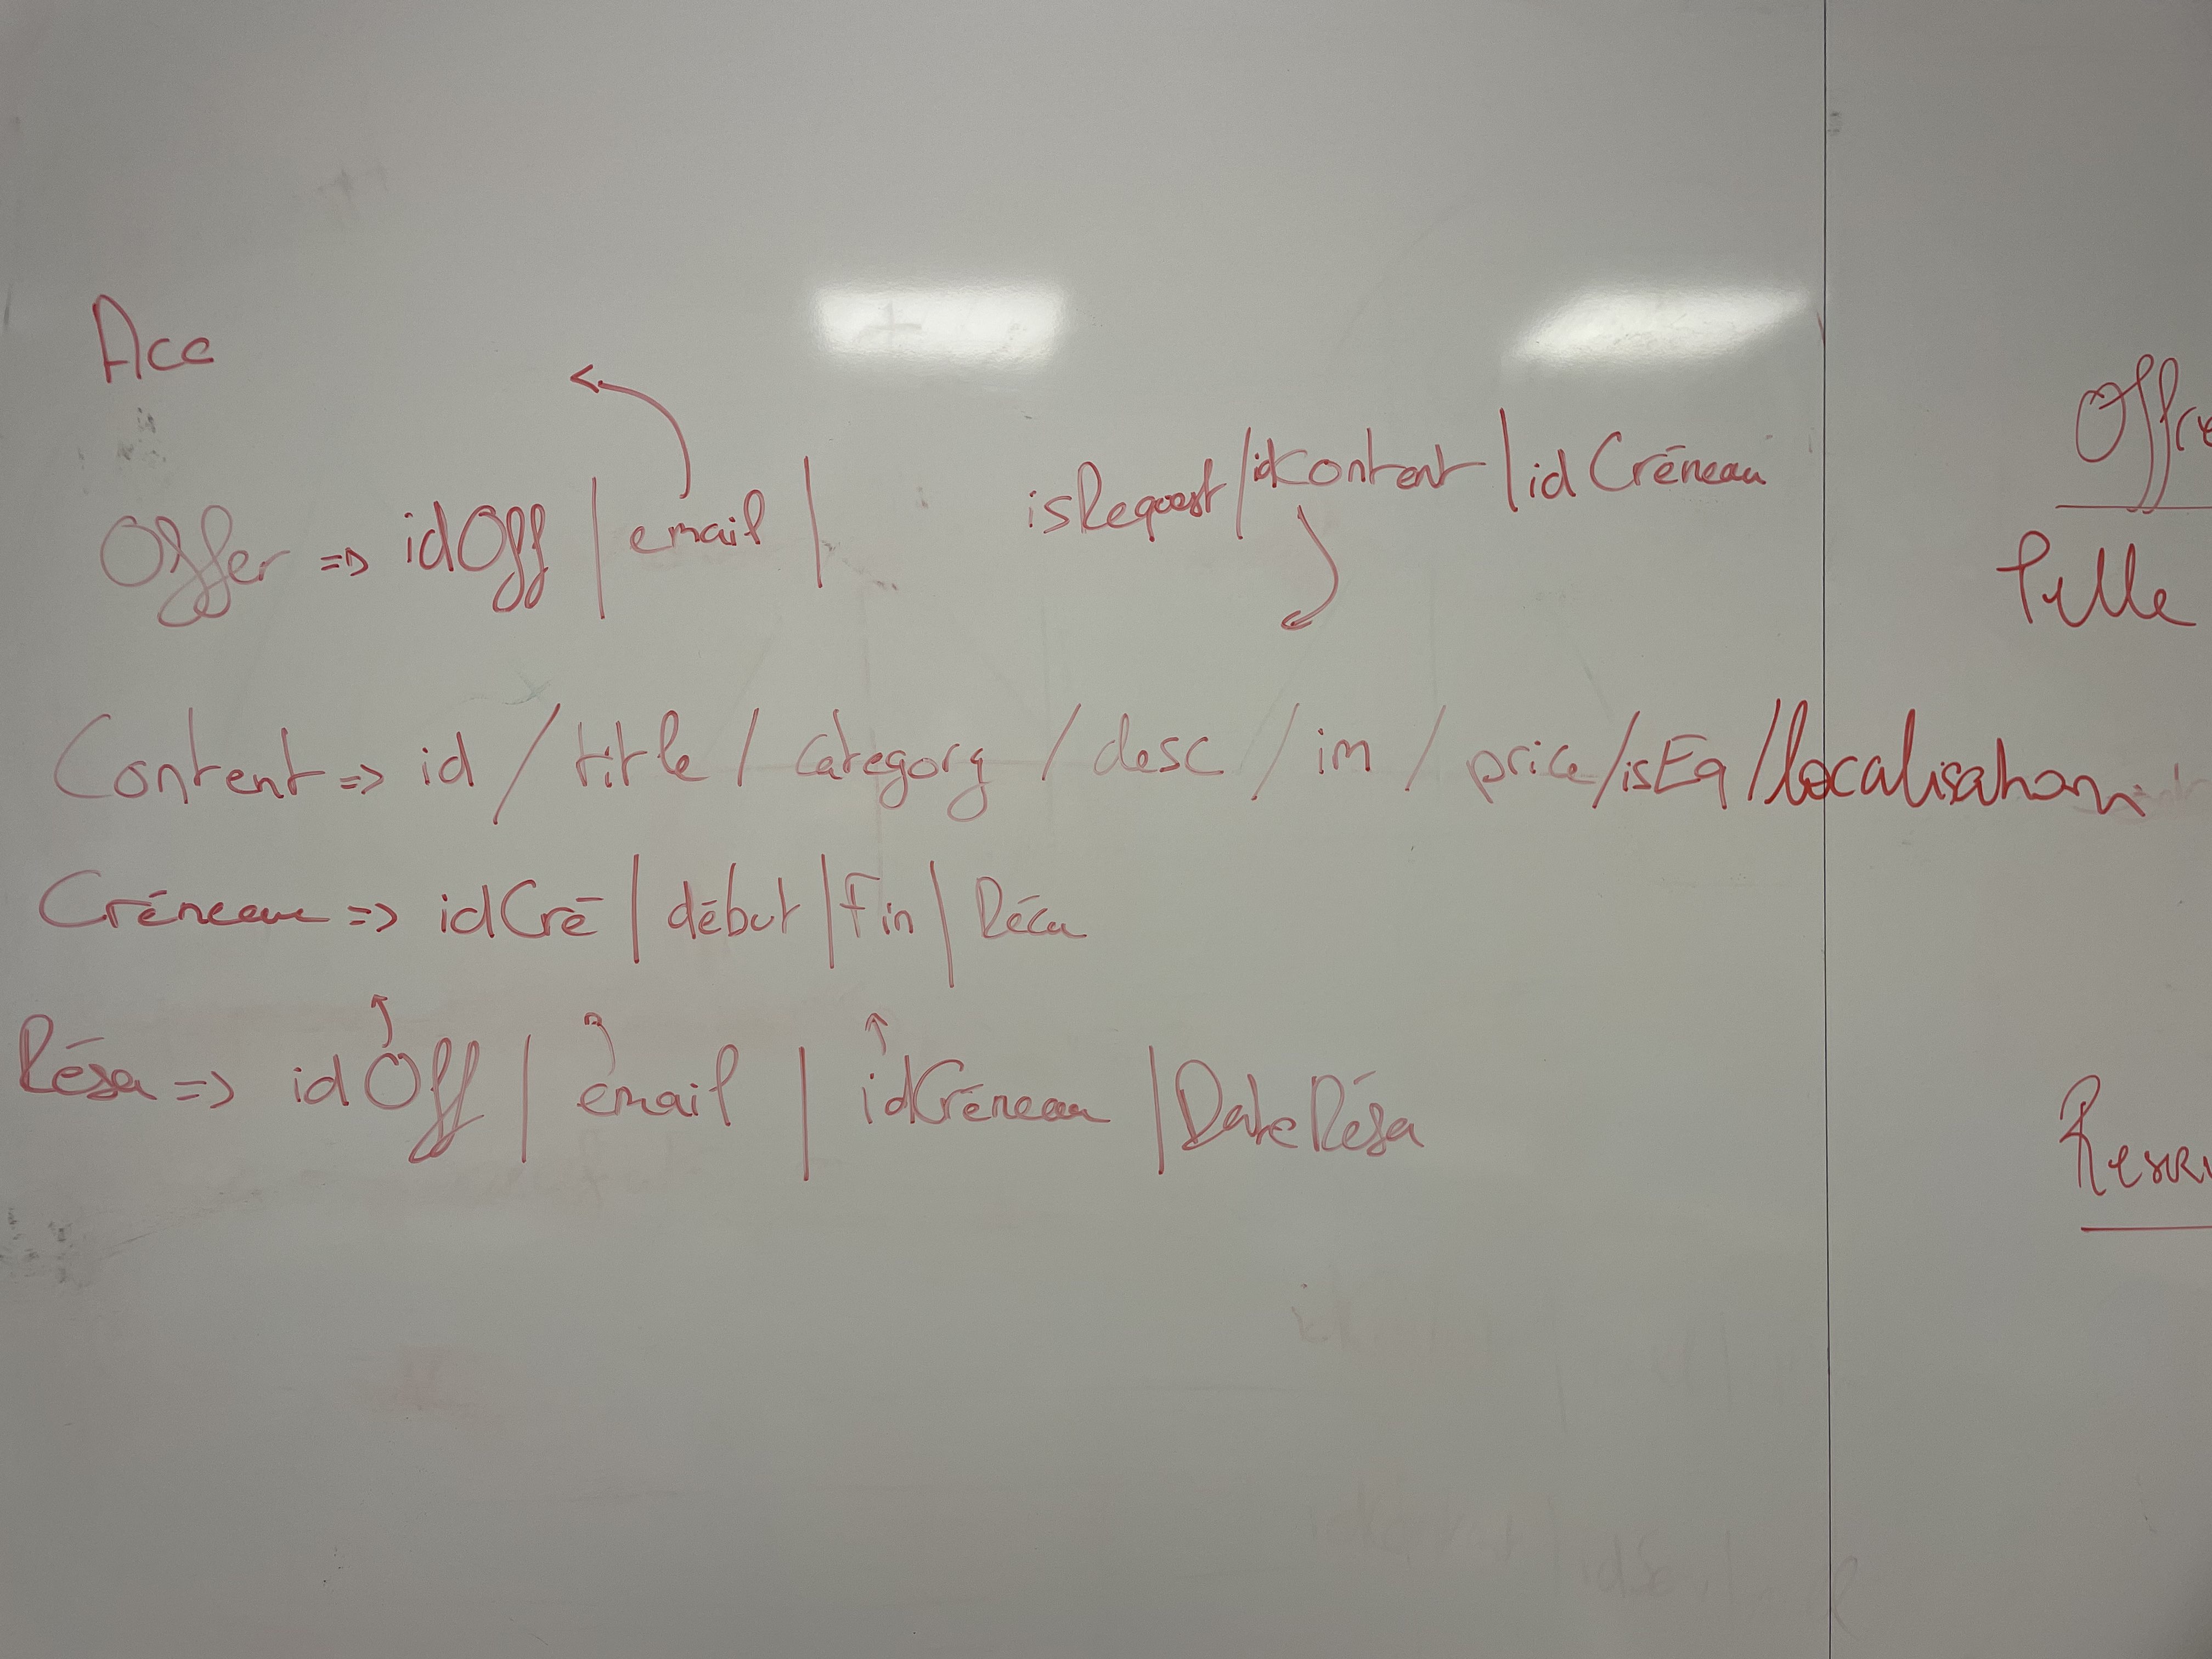 Acc
Offer => idOff | email | isRequest / idContent | idCréneau
Content => id / title / category / desc / im / price / isEq / localisation
Créneau => idCré | début | Fin | Récu
Résa => idOff | email | idCréneau | DateRésa
Offre
Pelle
Reser